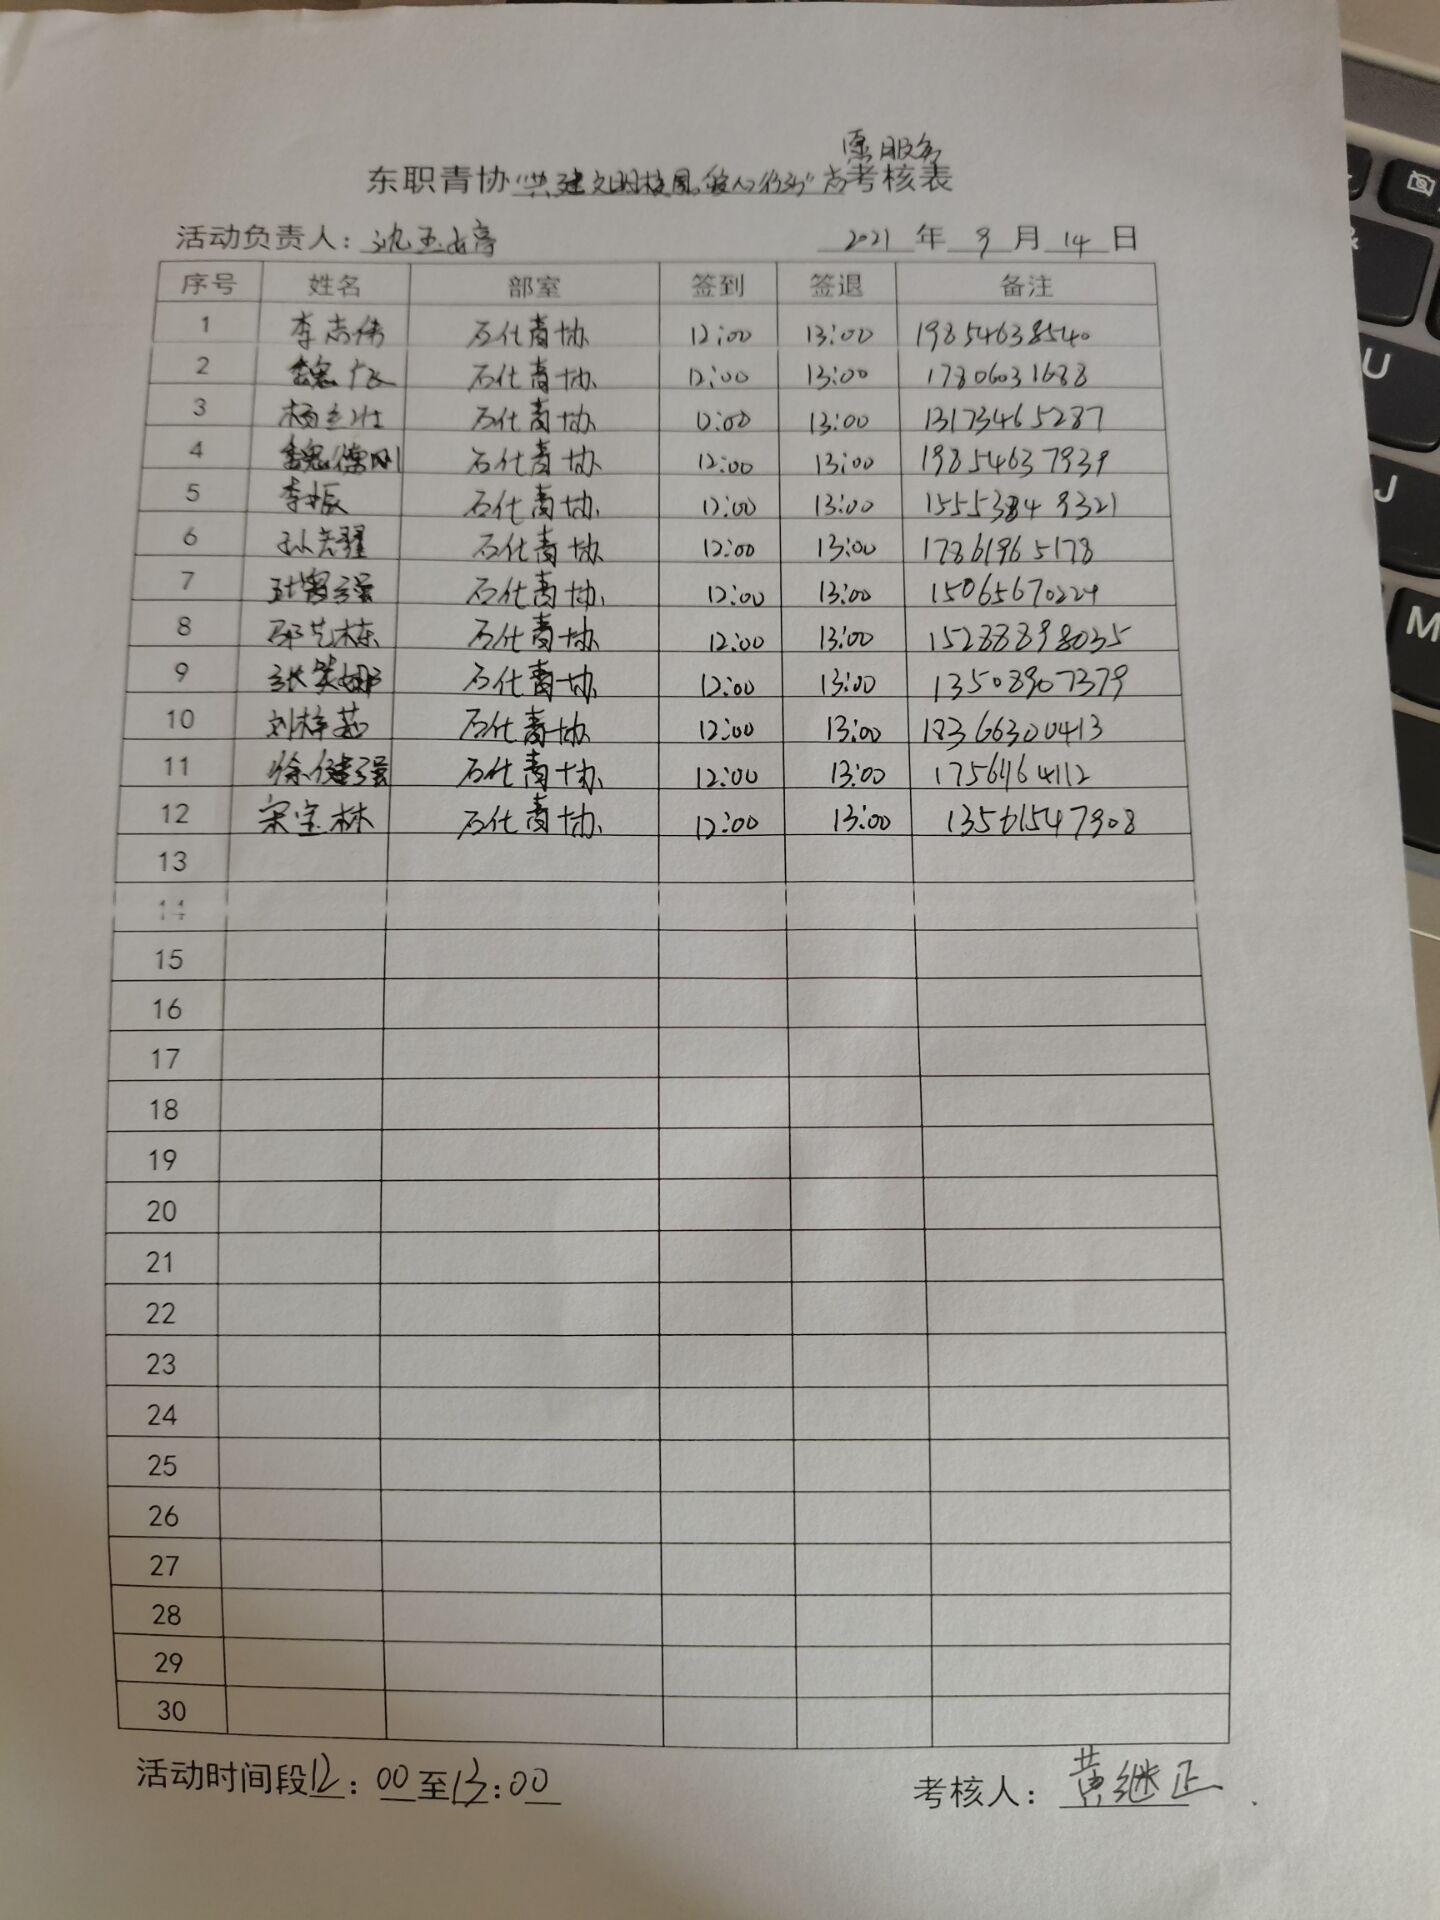 愿服务
东职青协"共建文明校园,从我行动"志考核表
活动负责人:沈玉婷 2021 年 9 月 14 日
序号 姓名 部室 签到 签退 备注
1 李志伟 石化青协 12:00 13:00 19854638540
2 魏广 石化青协 12:00 13:00 17806031688
3 杨 壮 石化青协 12:00 13:00 13173465287
4 魏德刚 石化青协 12:00 13:00 19854637939
5 李振 石化青协 12:00 13:00 15553849321
6 孙 石化青协 12:00 13:00 17861965178
7 强 石化青协 12:00 13:00 15065670224
8 邢艺栋 石化青协 12:00 13:00 15288898035
9 张 娜 石化青协 12:00 13:00 13508907379
10 刘梓茹 石化青协 12:00 13:00 18366300413
11 徐健强 石化青协 12:00 13:00
12 宋宝林 石化青协 12:00 13:00 13561547908
13
14
15
16
17
18
19
20
21
22
23
24
25
26
27
28
29
30
活动时间段12:00至13:00 考核人:黄继正
U
J
M